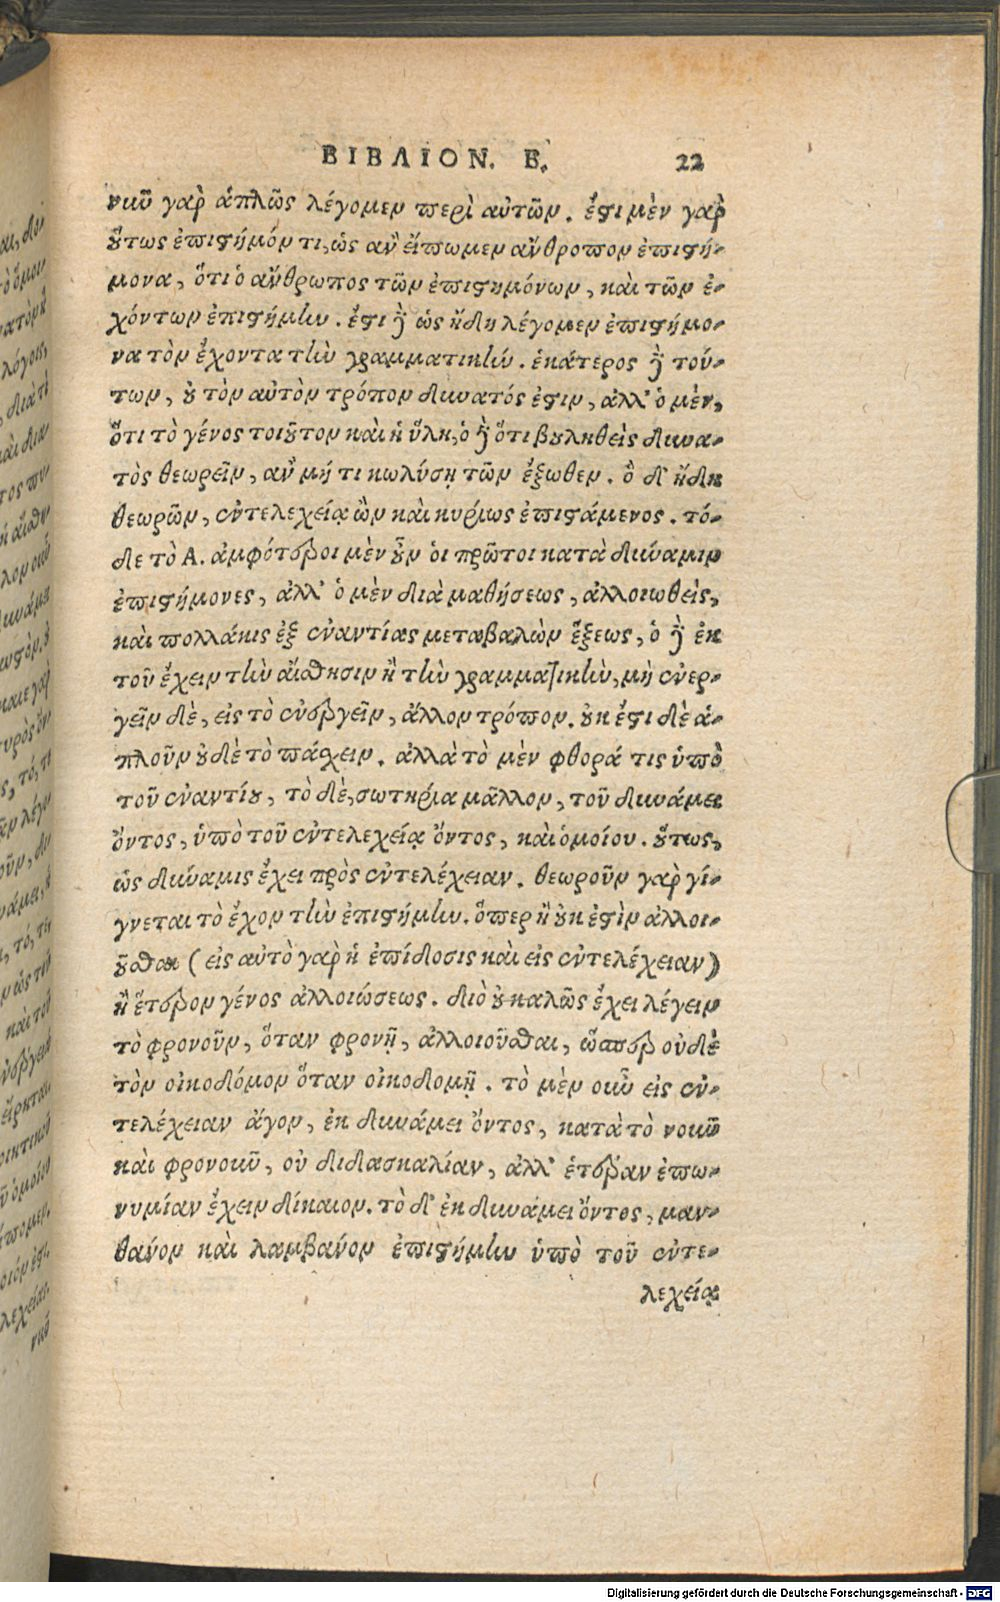 ΒΙΒΛΙΟΝ. Β. 22
νῦν γὰρ ἁπλῶς λέγομεν περὶ αὐτῶν. ἔστι μὲν γὰρ
οὕτως ἐπιστήμόν τι, ὡς ἂν εἴπωμεν ἄνθροπον ἐπιστή-
μονα, ὅτι ὁ ἄνθρωπος τῶν ἐπιστημόνων, καὶ τῶν ἐ-
χόντων ἐπιστήμην. ἔστι δὲ ὡς ἤδη λέγομεν ἐπιστήμο-
να τὸν ἔχοντα τὴν γραμματικήν. ἑκάτερος δὲ τού-
των, οὐ τὸν αὐτὸν τρόπον δυνατός ἐστιν, ἀλλ' ὁ μὲν,
ὅτι τὸ γένος τοιοῦτον καὶ ἡ ὕλη, ὁ δὲ ὅτι βουληθεὶς δυνα-
τὸς θεωρεῖν, ἂν μή τι κωλύσῃ τῶν ἔξωθεν. ὃ δ' ἤδη
θεωρῶν, ἐντελεχείᾳ ὢν καὶ κυρίως ἐπιστάμενος. τό-
δε τὸ Α. ἀμφότεροι μὲν οὖν οἱ πρῶτοι κατὰ δύναμιν
ἐπιστήμονες, ἀλλ' ὁ μὲν διὰ μαθήσεως, ἀλλοιωθεὶς,
καὶ πολλάκις ἐξ ἐναντίας μεταβαλὼν ἕξεως, ὁ δὲ ἐκ
τοῦ ἔχειν τὴν αἴσθησιν ἢ τὴν γραμματικὴν, μὴ ἐνερ-
γεῖν δὲ, εἰς τὸ ἐνεργεῖν, ἄλλον τρόπον. οὐκ ἔστι δὲ ἁ-
πλοῦν οὐδὲ τὸ πάσχειν. ἀλλὰ τὸ μὲν φθορά τις ὑπὸ
τοῦ ἐναντίου, τὸ δὲ, σωτηρία μᾶλλον, τοῦ δυνάμει
ὄντος, ὑπὸ τοῦ ἐντελεχείᾳ ὄντος, καὶ ὁμοίου. οὕτως,
ὡς δύναμις ἔχει πρὸς ἐντελέχειαν. θεωροῦν γὰρ γί-
γνεται τὸ ἔχον τὴν ἐπιστήμην. ὅπερ ἢ οὐκ ἐστὶν ἀλλοι-
οῦσθαι (εἰς αὐτὸ γὰρ ἡ ἐπίδοσις καὶ εἰς ἐντελέχειαν)
ἢ ἕτερον γένος ἀλλοιώσεως. διὸ οὐ καλῶς ἔχει λέγειν
τὸ φρονοῦν, ὅταν φρονῇ, ἀλλοιοῦσθαι, ὥσπερ οὐδὲ
τὸν οἰκοδόμον ὅταν οἰκοδομῇ. τὸ μὲν οὖν εἰς ἐν-
τελέχειαν ἄγον, ἐκ δυνάμει ὄντος, κατὰ τὸ νοοῦν
καὶ φρονοῦν, οὐ διδασκαλίαν, ἀλλ' ἑτέραν ἐπω-
νυμίαν ἔχειν δίκαιον. τὸ δ' ἐκ δυνάμει ὄντος, μαν-
θάνον καὶ λαμβάνον ἐπιστήμην ὑπὸ τοῦ ἐντε-
λεχείᾳ
Digitalisierung gefördert durch die Deutsche Forschungsgemeinschaft - DFG